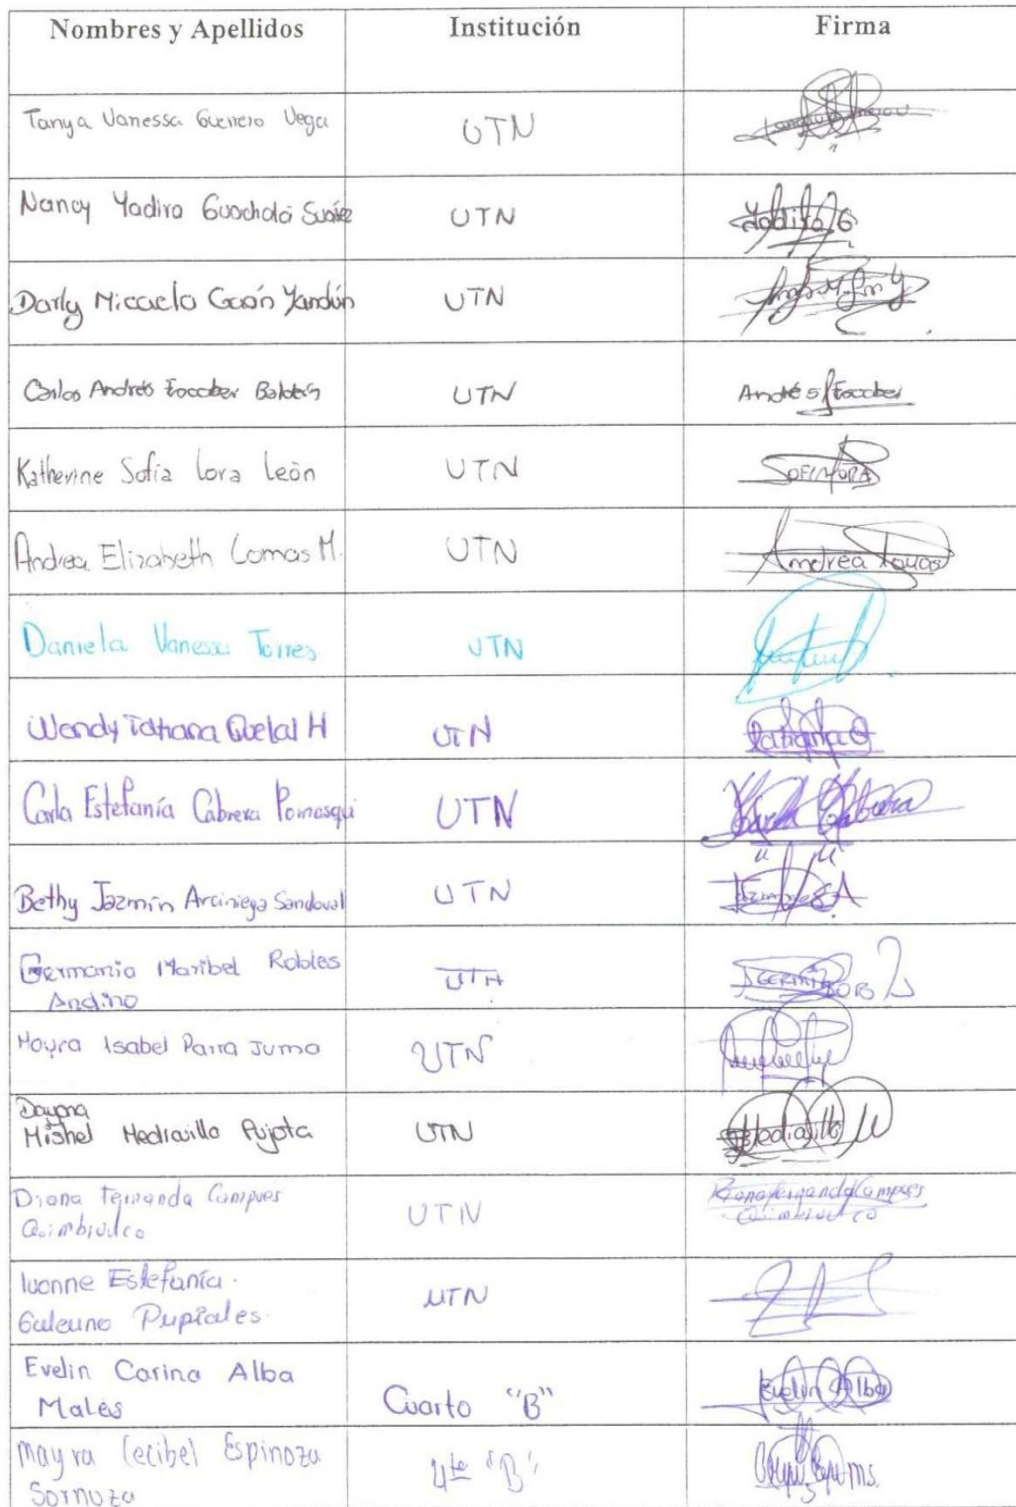 Nombres y Apellidos Institución Firma
Tanya Vanessa Guerrero Vega UTN
Nancy Yadira Guachalá Suárez UTN Yadira G
Darly Micaela Guión Yandún UTN
Carlos Andrés Escobar UTN Andrés Escobar
Katherine Sofia Lora León UTN
Andrea Elizabeth Lomas M. UTN Andrea Lomas
Daniela Vanessa Torres UTN
Wendy Tatiana Quelal H UTN Tatiana Q
Carla Estefanía Cabrera Pomasqui UTN Karla Cabrera
Bethy Jazmín Arciniega Sandoval UTN
Germania Maribel Robles UTN
Andino
Mayra Isabel Parra Juma UTN
Dayana
Mishel Mediavilla Pujota UTN Mediavilla M
Diana Fernanda Campues UTN Diana Fernanda Campues
Quimbiulco Quimbiulco
Ivonne Estefanía.
Pupiales. UTN
Evelin Carina Alba
Males Cuarto "B" Evelin Alba
Mayra Cecibel Espinoza
Sornoza 4to "B"